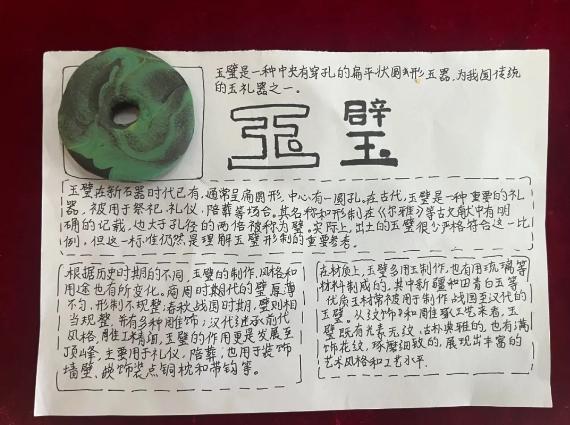 玉璧是一种中央有穿孔的扁平状圆形玉器,为我国传统
的玉礼器之一。
玉璧
玉璧在新石器时代已有,通常呈扁圆形,中心有一圆孔。在古代,玉璧是一种重要的礼
器,被用于祭祀、礼仪、陪葬等场合。其名称和形制在《尔雅》等古文献中有明
确的记载,也大于孔径的两倍被称为璧。实际上,出土的玉璧很少严格符合这一比
例,但这一标准仍然是理解玉璧形制的重要参考。
根据历史时期的不同,玉璧的制作、风格和
用途也有所变化。商周时期代的璧厚薄
不匀,形制不规整;春秋战国时期,璧则相
当规整,并有多种雕饰;汉代继承前代
风格,雕工精细,玉璧的作用更是发展至
顶峰,主要用于礼仪、陪葬;也用于装饰
墙壁、嵌饰装点铜枕和带钩等。
在材质上,玉璧多用玉制作,也有用琉璃等
材料制成的。其中新疆和田青白玉等
优质玉材常被用于制作战国至汉代的
玉璧。从纹饰和雕琢工艺来看,玉
璧既有光素无纹、古朴典雅的,也有满
饰花纹,琢磨细致的,展现出丰富的
艺术风格和工艺水平.